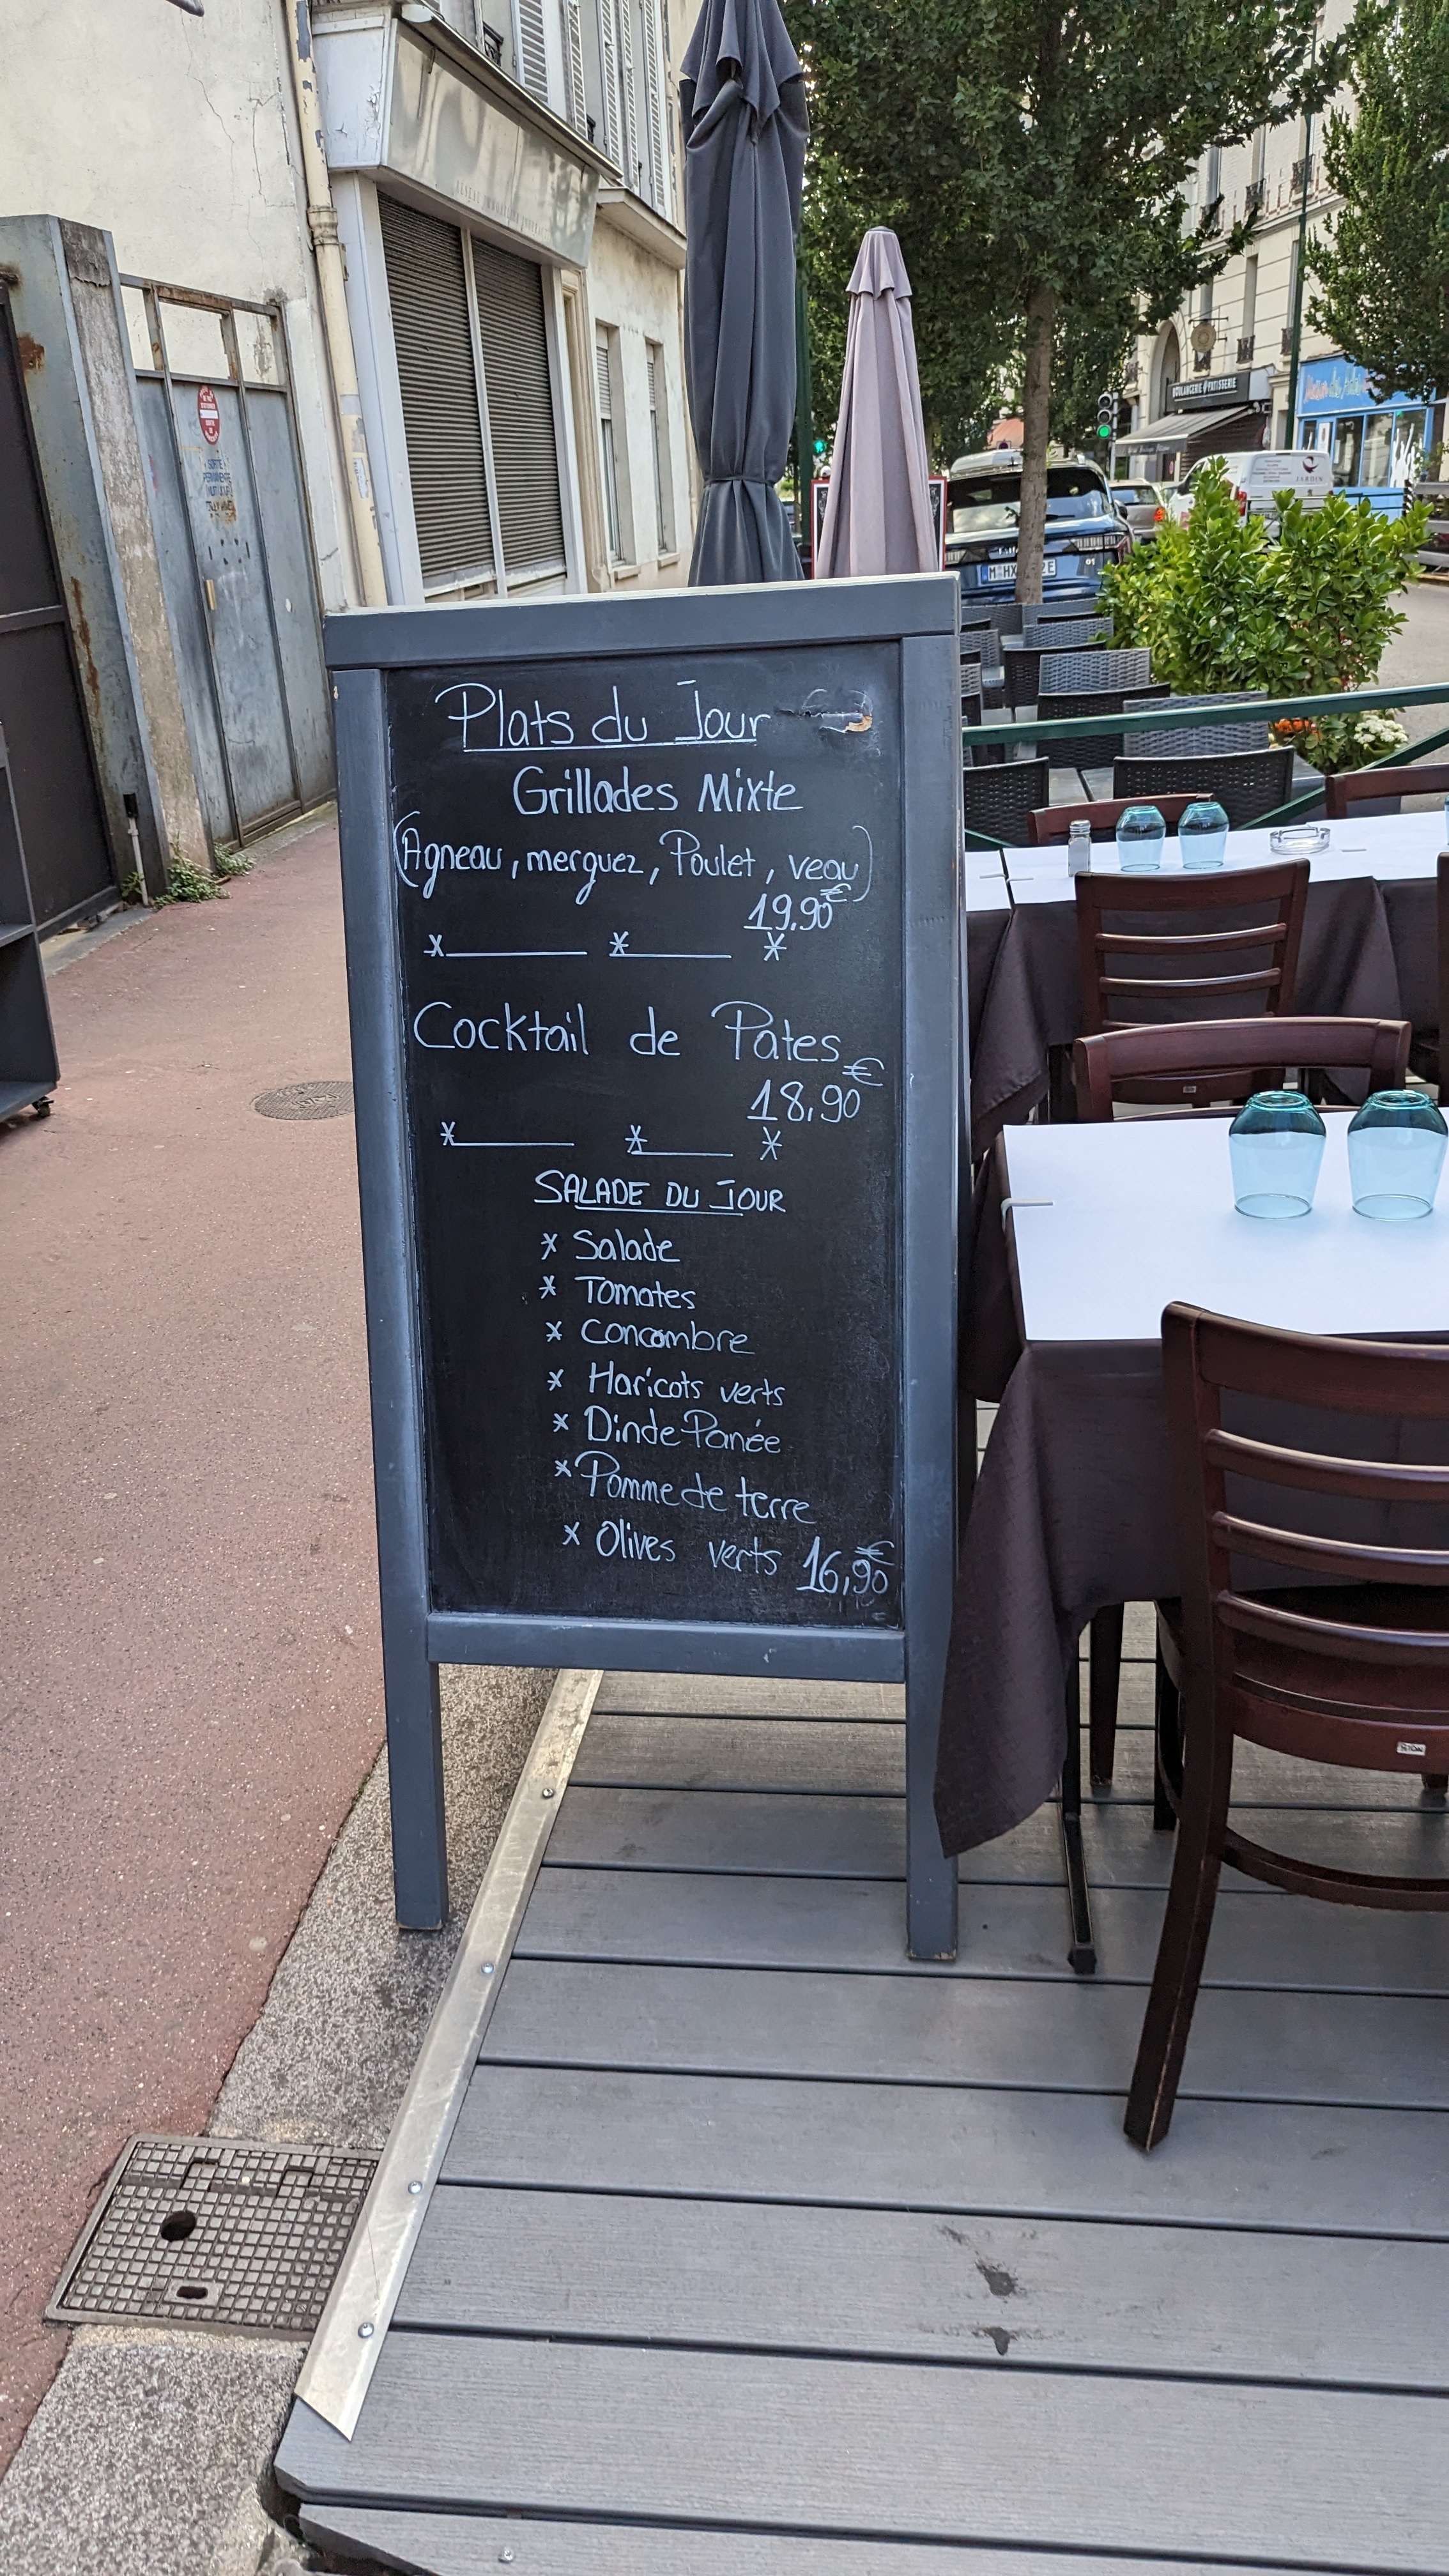 Plats du Jour
Grillades Mixte
(Agneau, merguez, Poulet, veau)
19.90€
Cocktail de Pates
18,90€
SALADE DU JOUR
* Salade
* Tomates
* Concombre
* Haricots verts
* Dinde Panée
* Pomme de terre
* Olives verts 16,90€
BOULANGERIE PATISSERIE
JARDIN
SORTIE
PERMANENTE